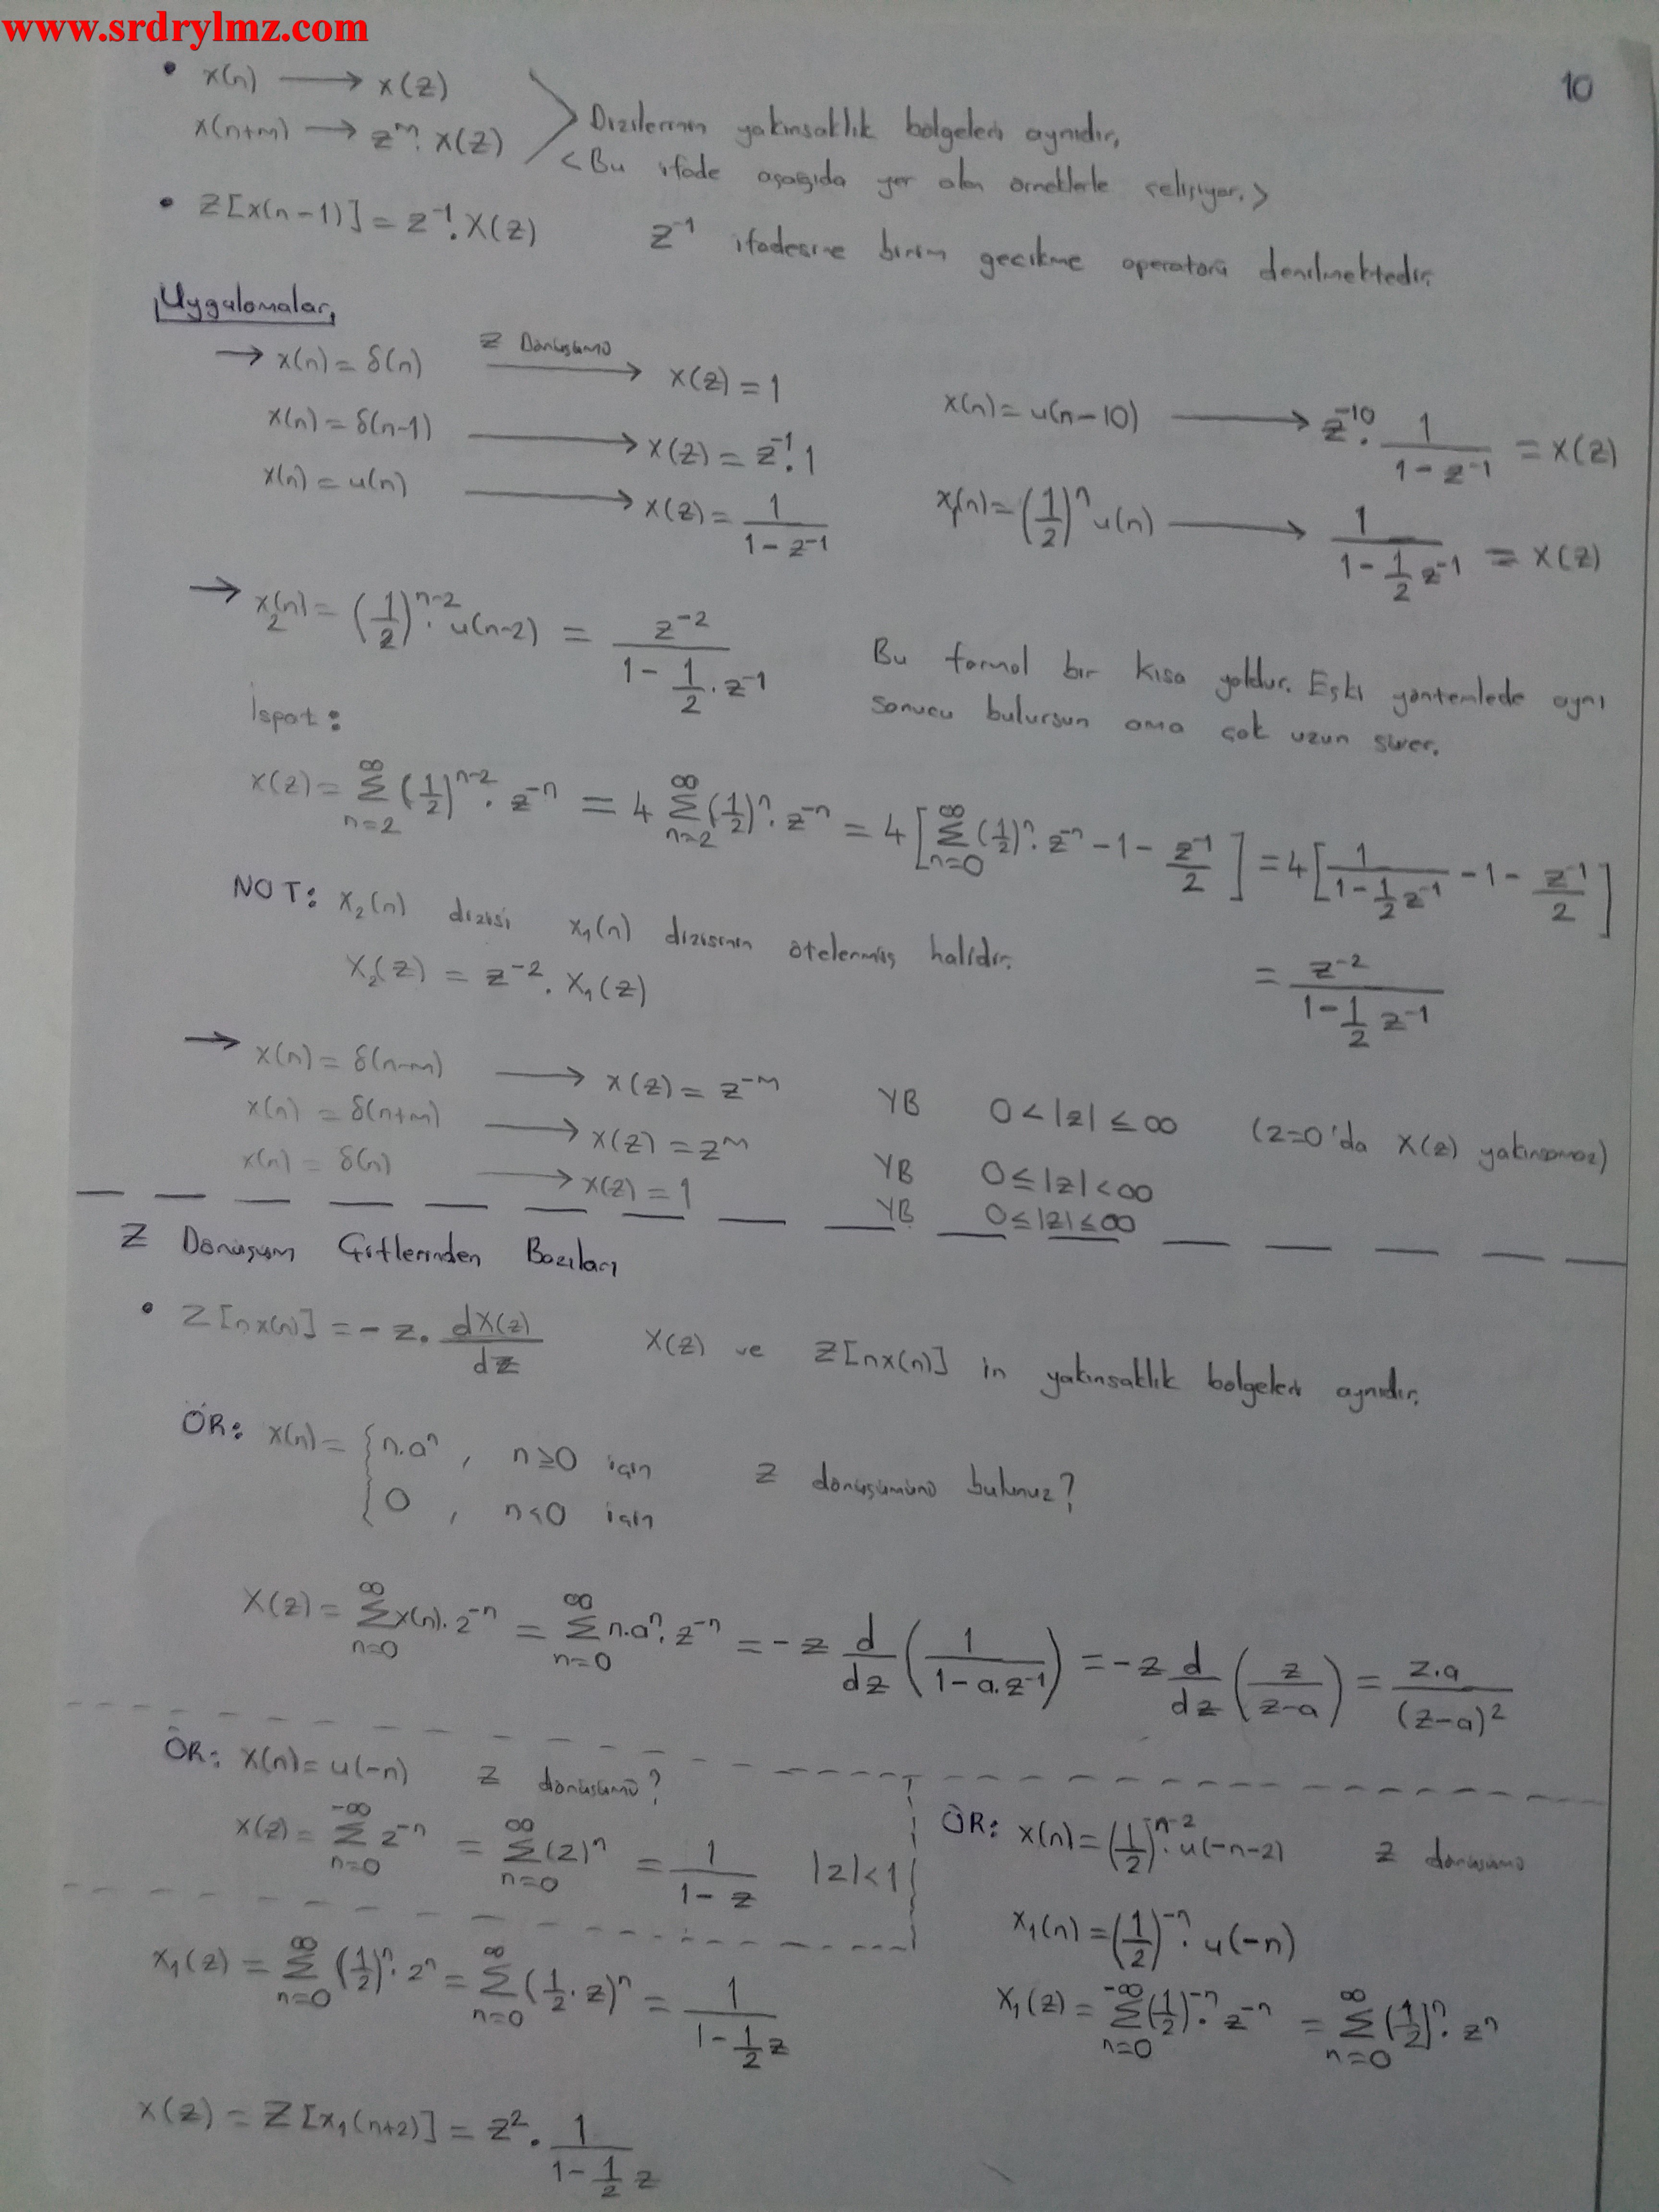 www.srdrylmz.com
10
• x(n) ⟶ x(z)
x(n+m) ⟶ z^m . x(z)
> Dizilerinin yakınsaklık bölgeleri aynıdır.
<Bu ifade aşağıda yer alan örneklerle çelişiyor.>
• Z[x(n-1)] = z^-1 . X(z)   z^-1 ifadesine birim gecikme operatörü denilmektedir.
Uygulamalar
→ x(n) = δ(n)   Z Dönüşümü ⟶ x(z) = 1
x(n) = δ(n-1) ⟶ x(z) = z^-1 . 1
x(n) = u(n) ⟶ x(z) = 1/(1 - z^-1)
x(n) = u(n-10) ⟶ z^-10 . 1/(1 - z^-1) = x(z)
x₁(n) = (1/2)^n u(n) ⟶ 1/(1 - 1/2 z^-1) = x(z)
→ x₂(n) = (1/2)^(n-2) . u(n-2) = z^-2/(1 - 1/2 . z^-1)
Bu formül bir kısa yoldur. Eski yöntemlede aynı
sonucu bulursun ama çok uzun sürer.
İspat:
x(z) = ∑_{n=2}^{∞} (1/2)^(n-2) . z^-n = 4 ∑_{n=2}^{∞} (1/2)^n . z^-n = 4[∑_{n=0}^{∞} (1/2)^n . z^-n - 1 - z^-1/2] = 4[1/(1 - 1/2 z^-1) - 1 - z^-1/2]
= z^-2/(1 - 1/2 z^-1)
NOT: x₂(n) dizisi x₁(n) dizisinin ötelenmiş halidir.
X₂(z) = z^-2 . X₁(z)
→ x(n) = δ(n-m) ⟶ x(z) = z^-m   YB   0 < |z| ≤ ∞   (z=0'da X(z) yakınsamaz)
x(n) = δ(n+m) ⟶ x(z) = z^m   YB   0 ≤ |z| < ∞
x(n) = δ(n) ⟶ x(z) = 1   YB   0 ≤ |z| ≤ ∞
Z Dönüşüm Çiftlerinden Bazıları
• Z[nx(n)] = - z . dX(z)/dz   X(z) ve Z[nx(n)] in yakınsaklık bölgeleri aynıdır.
ÖR: x(n) = { n.a^n , n ≥ 0 için   Z dönüşümünü bulunuz?
0 , n < 0 için
X(z) = ∑_{n=0}^{∞} x(n) . z^-n = ∑_{n=0}^{∞} n.a^n . z^-n = - z d/dz (1/(1 - a.z^-1)) = - z d/dz (z/(z-a)) = z.a/(z-a)^2
ÖR: x(n) = u(-n)   Z dönüşümü?
x(z) = ∑_{n=0}^{-∞} z^-n = ∑_{n=0}^{∞} (z)^n = 1/(1 - z)   |z| < 1
ÖR: x(n) = (1/2)^(-n-2) . u(-n-2)   Z dönüşümü
x₁(n) = (1/2)^-n . u(-n)
X₁(z) = ∑_{n=0}^{-∞} (1/2)^-n . z^-n = ∑_{n=0}^{∞} (1/2)^n . z^n
x₁(z) = ∑_{n=0}^{∞} (1/2)^n . z^n = ∑_{n=0}^{∞} (1/2 . z)^n = 1/(1 - 1/2 z)
x(z) = Z[x₁(n+2)] = z^2 . 1/(1 - 1/2 z)